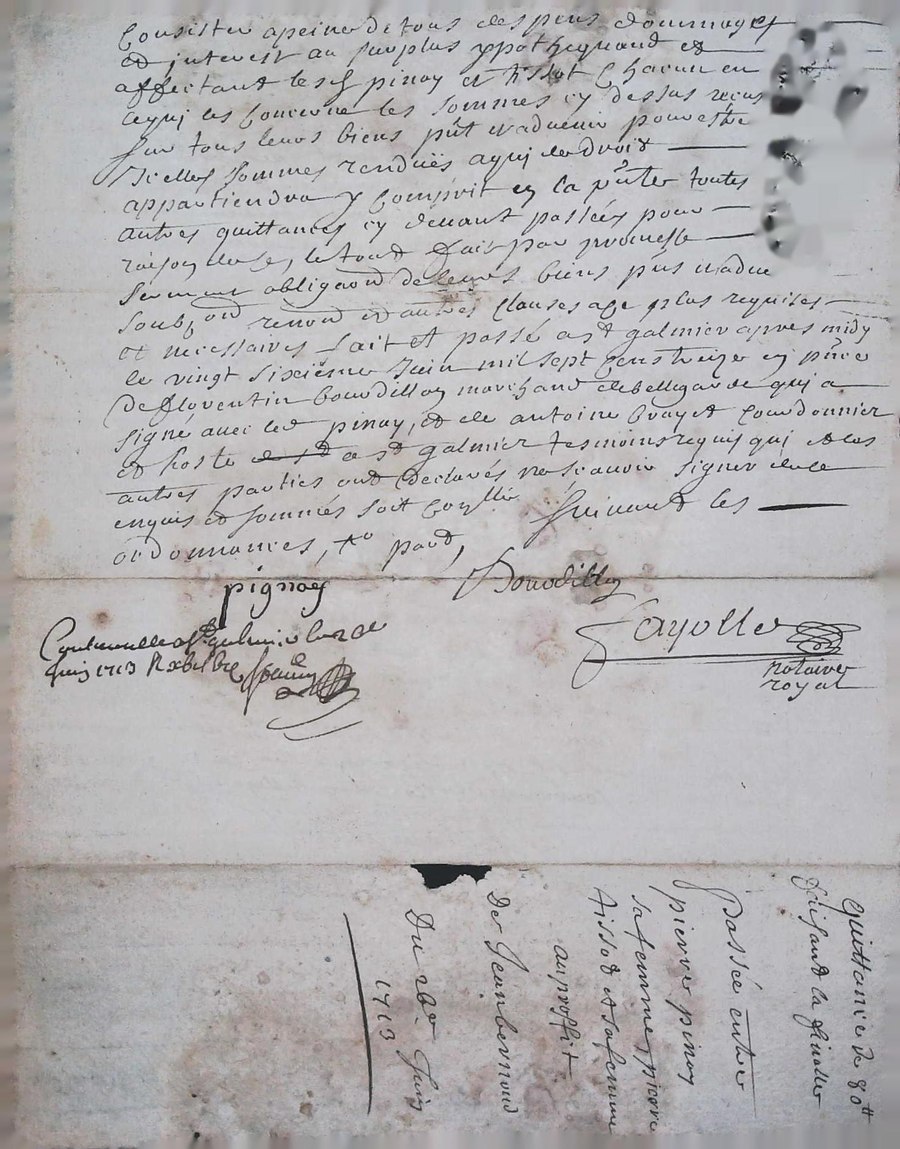 Consister apeine de tous despens dommages
et interest au surplus yppothequand et
affectand lesd pinay et tissot Chacun en
cequi les Concerne les sommes cy dessus recus
sur tous leurs biens pnt et aduenir pour estre
Icelles sommes renduës aqui de droit
appartiendra y Comprit en la pnte toutes
autres quittances cy deuant passées pour
raison de ce, le tout fait par promesse
serment obligaond de leurs biens pns et adue
soubzond renond et autres Clauses age plus requises
et necessaires fait et passé a st galmier apres midy
le vingt sixiéme Juin mil sept Cens treize en pnce
de florentin bourdillon marchand de bellegarde qui a
signé auec led pinay, et de antoine brayet Courdonnier
et hoste a st galmier tesmoins requis qui et les
autres parties ont declarés ne scauoir signer de ce
enquis et sommés soit Conllé suiuand les
ordonnances, pard,
pignay
Bourdillon
Conterollé a st galmier le
Juin 1713 R
fayolle
notaire
royal
Quittance de 80tt
faisant la finalle
Passée entre
pierre pinay
sa femme pierre
tissot et sa femme
au proffit
De Jean bernoud
Du 26e Juin
1713